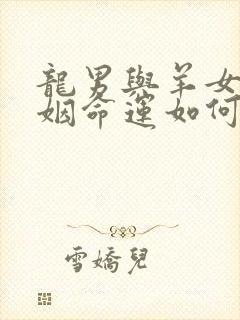 龍男與羊女
姻命運如何
雪嬌兒